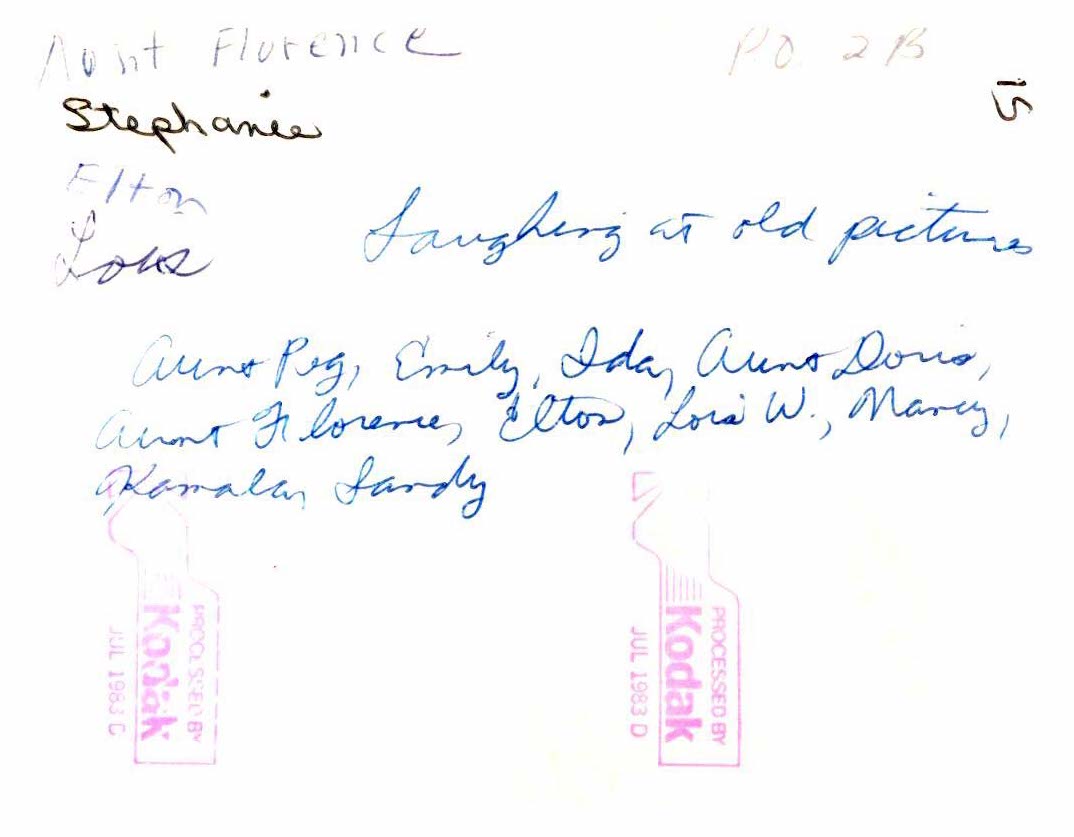 Aunt Florence
P.O. 2B
Stephanie
15
Elton
Lois
Laughing at old pictures
Aunt Peg, Emily, Ida, Aunt Doris,
Aunt Florence, Elton, Lois W., Nancy,
Kamala, Sandy
PROCESSED BY
Kodak
JUL 1983 C
PROCESSED BY
Kodak
JUL 1983 D